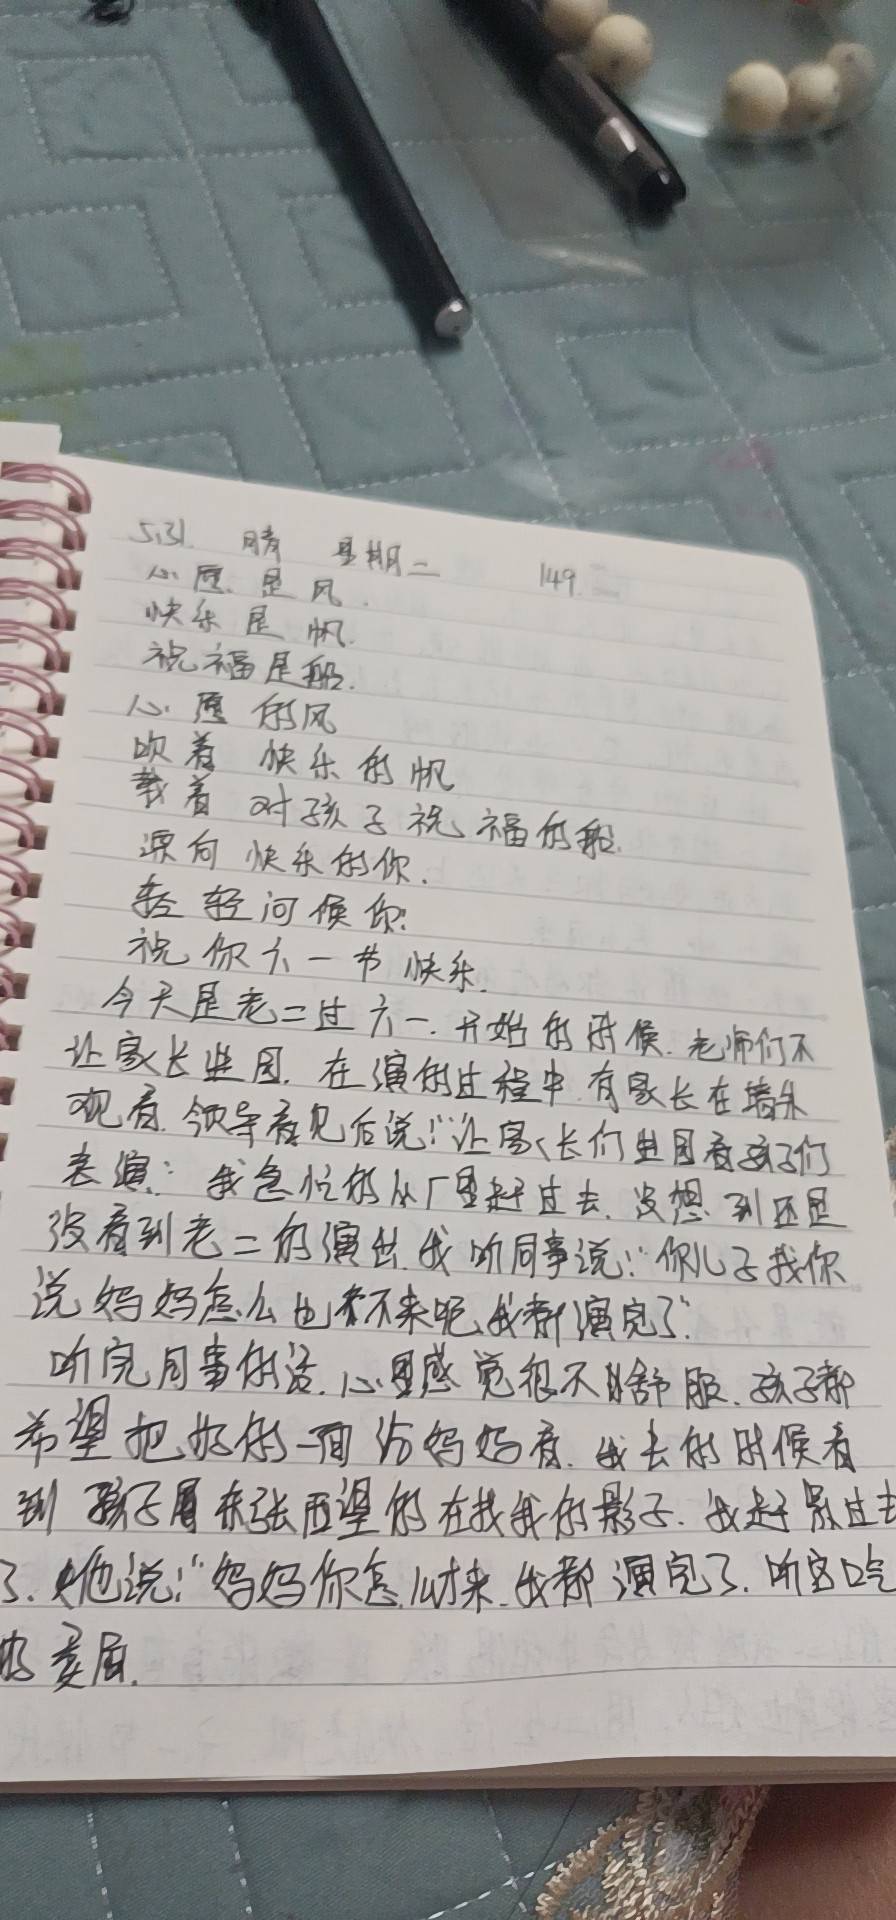 5.31. 晴 星期二 149.
心愿是风.
快乐是帆.
祝福是船.
心愿的风
吹着 快乐的帆
载着 对孩子祝福的船.
漂向 快乐的你.
轻轻问候你:
祝你六一节快乐.
今天是老二过六一.开始的时候.老师们不
让家长进园.在演的过程中.有家长在墙外
观看.领导看见后说:"让家长们进园看孩子们
表演." 我急忙的从厂里赶过去.没想到还是
没看到老二的演出.我听同事说:"你儿子找你
说妈妈怎么也不来呢.我都演完了."
听完同事的话.心里感觉很不舒服.孩子都
希望把好的一面给妈妈看.我去的时候看
到孩子东张西望的在找我的影子.我赶紧过去
了.他说:"妈妈你怎么才来.我都演完了.听
的委屈.